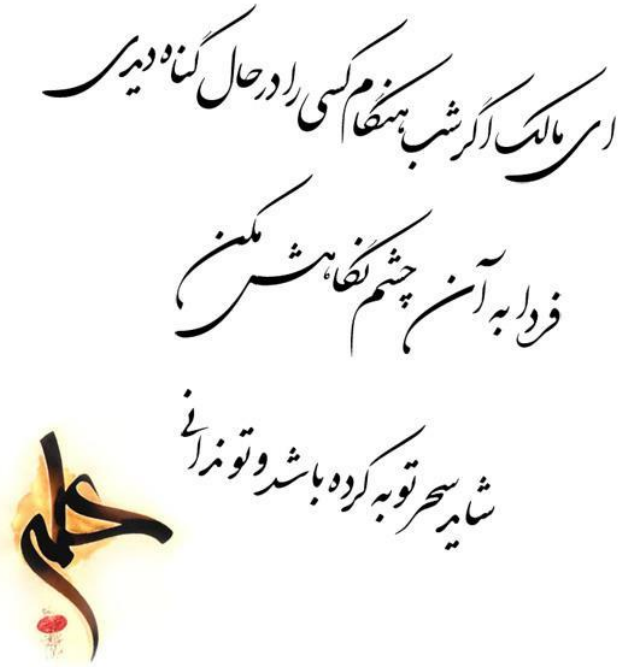 ای مالک اگر شب هنگام کسی را در حال گناه دیدی
فردا به آن چشم نگاهش مکن
شاید سحر توبه کرده باشد و تو ندانی